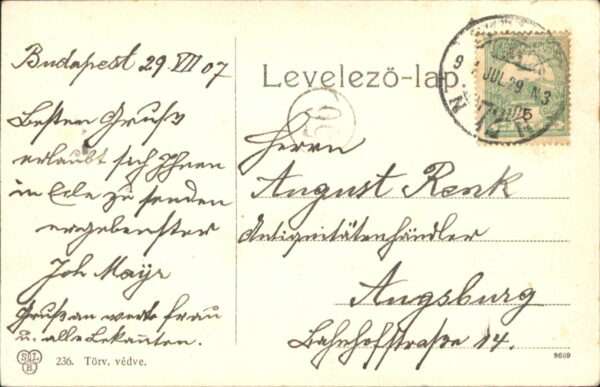 Budapest 29 VII 07
Besten Gruß
erlaubt sich Ihnen
in Eile zu senden
ergebenster
Joh Mayr
Gruß an werte Frau
u. alle Bekannten.
236. Törv. védve.
Levelező-lap
50
9 JUL 29 N3
5
Herrn
August Renk
Antiquitätenhändler
Augsburg
Bahnhofstraße 14.
9669